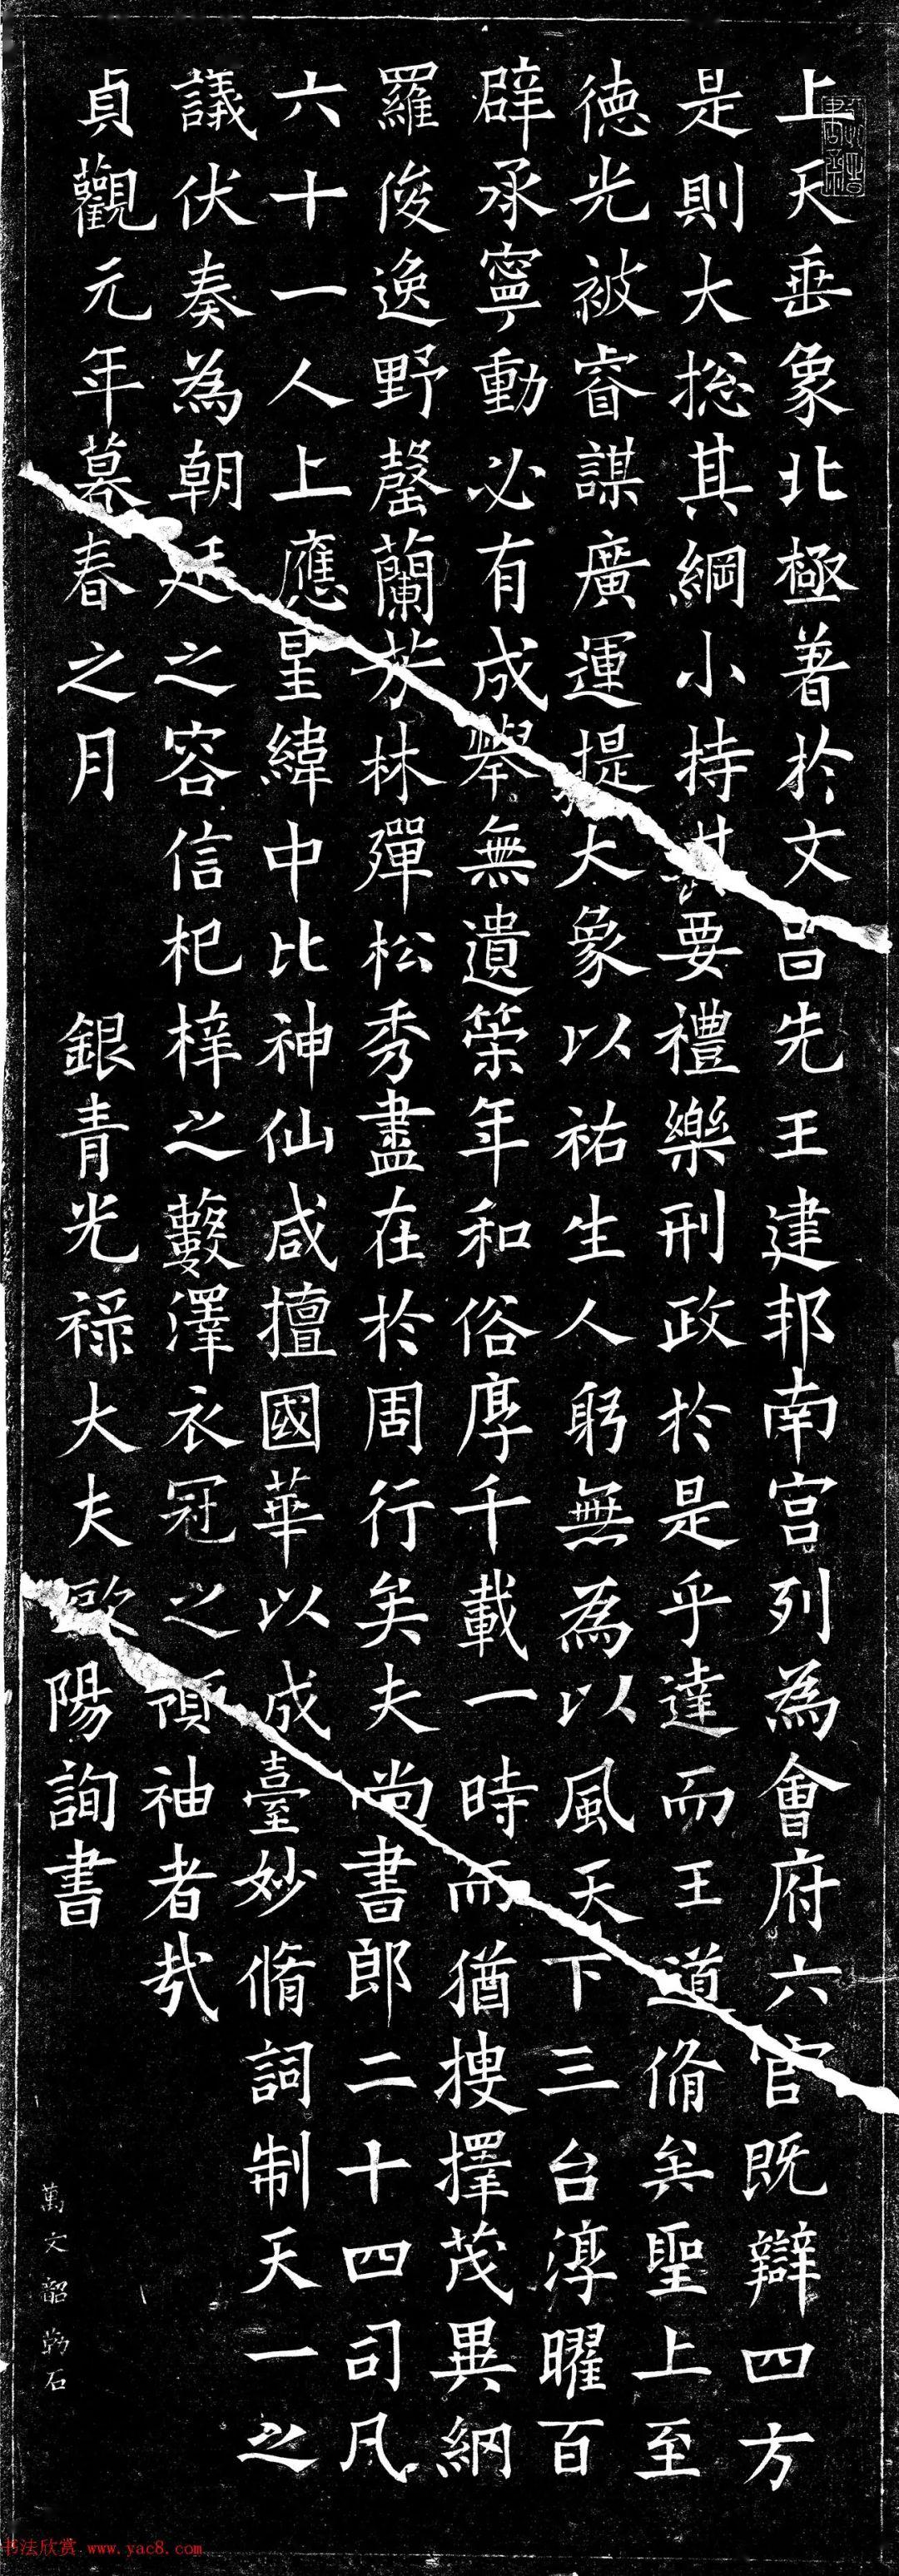 上天垂象北極著於文昌先王建邦南宮列為會府六官既辯四方
是則大揔其綱小持其要禮樂刑政於是乎達而王道脩矣聖上至
徳光被睿謀廣運提大象以祐生人躬無為以風天下三台淳曜百
辟承寧動必有成舉無遺筞年和俗厚千載一時而猶搜擇茂異網
羅俊逸野罄蘭芬林殫松秀盡在於周行矣夫尚書郎二十四司凡
六十一人上應星緯中比神仙咸擅國華以成臺妙脩詞制天一之
議伏奏為朝廷之容信杞梓之藪澤衣冠之領袖者哉
貞觀元年暮春之月 銀青光祿大夫歐陽詢書
萬文韶勒石
书法欣赏 www.yac8.com